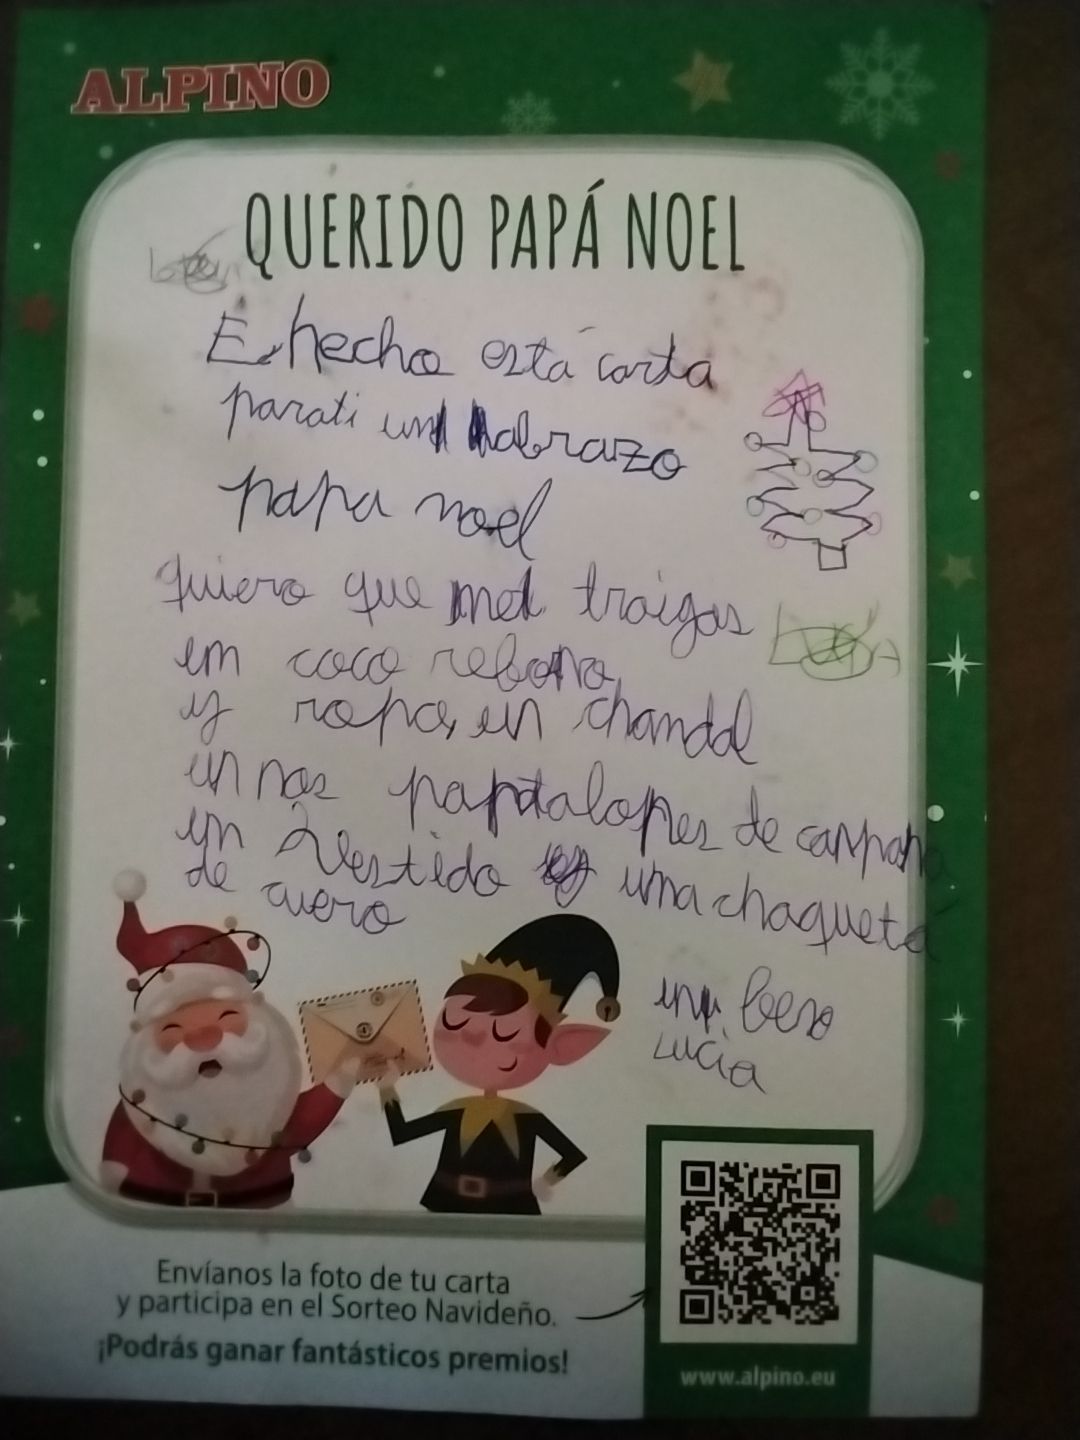 ALPINO
QUERIDO PAPÁ NOEL
E hecho está carta
parati un abrazo
papa noel
quiero que me traigas
un coco reborno
y ropa, un chandal
un nos pantalones de campana
un vestido una chaqueta
de cuero
un beso
Lucia
Envíanos la foto de tu carta
y participa en el Sorteo Navideño.
¡Podrás ganar fantásticos premios!
www.alpino.eu